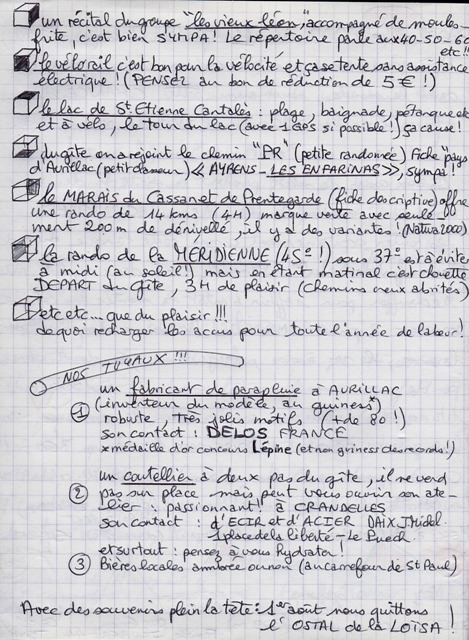 un récital du groupe "les vieux léon", accompagné de moules-
frite, c'est bien SYMPA! Le répertoire parle aux 40-50-60
etc!!
le vélorail c'est bon pour la vélocité et ça se tente sans assistance
électrique! (PENSEZ au bon de réduction de 5€!)
le lac de St Etienne Cantalès: plage, baignade, pétanque etc
et à vélo, le tour du lac (avec 1 GPS si possible!) ça cause!
du gîte on a rejoint le chemin "PR" (petite randonnée) fiche "pays
d'Aurillac (petit danseur) « AYRENS - LES ENFARINAS», sympa!
le MARAIS du Cassan et de Prentegarde (fiche descriptive) offre
une rando de 14 kms (4H) marque verte avec seule-
ment 200 m de dénivellé, il y a des variantes! (Natura 2000)
la rando de la MÉRIDIENNE (45°!) sous 37° est à éviter
à midi (au soleil!) mais en étant matinal c'est chouette
DEPART du gîte, 3H de plaisir (chemins creux abrités)
etc etc... que du plaisir!!!
de quoi recharger les accus pour toute l'année de labeur!
NOS TUYAUX!!!
un fabricant de parapluie à AURILLAC
(inventeur du modèle, au guiness*)
① robuste, très jolis motifs (+ de 80!)
son contact: DELOS FRANCE
*médaille d'or concours Lépine (et non griness des records!)
un coutellier à deux pas du gîte, il ne vend
② pas sur place mais peut vous ouvrir son ate-
lier: passionnant! à CRANDELLES
son contact: d'ECIR et d'ACIER DAIX Michel
1 place de la liberté - Le Puech
et surtout: pensez à vous hydrater!
③ Bières locales ambrée ou non (au carrefour de St Paul)
Avec des souvenirs plein la tête: 1er août nous quittons
l'OSTAL de la LOÏSA!